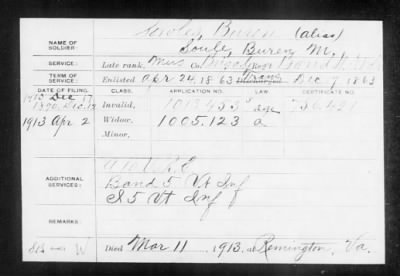 Sowles, Buren (alias)
NAME OF SOLDIER: Soule, Buren M.
SERVICE: Late rank, Mus Co. Brigade Reg't Band
TERM OF SERVICE: Enlisted Apr 24 1863 Trans Dec 7 1863
DATE OF FILING. CLASS. APPLICATION NO. LAW. CERTIFICATE NO.
1890 Dec. Invalid, 1013.453
1913 Apr 2 Widow, 1005.123 a
Minor,
ADDITIONAL SERVICES:
Band 5 Vt Inf
I 5 Vt Inf
REMARKS:
W Died Mar 11 1913, at Remington, Va.